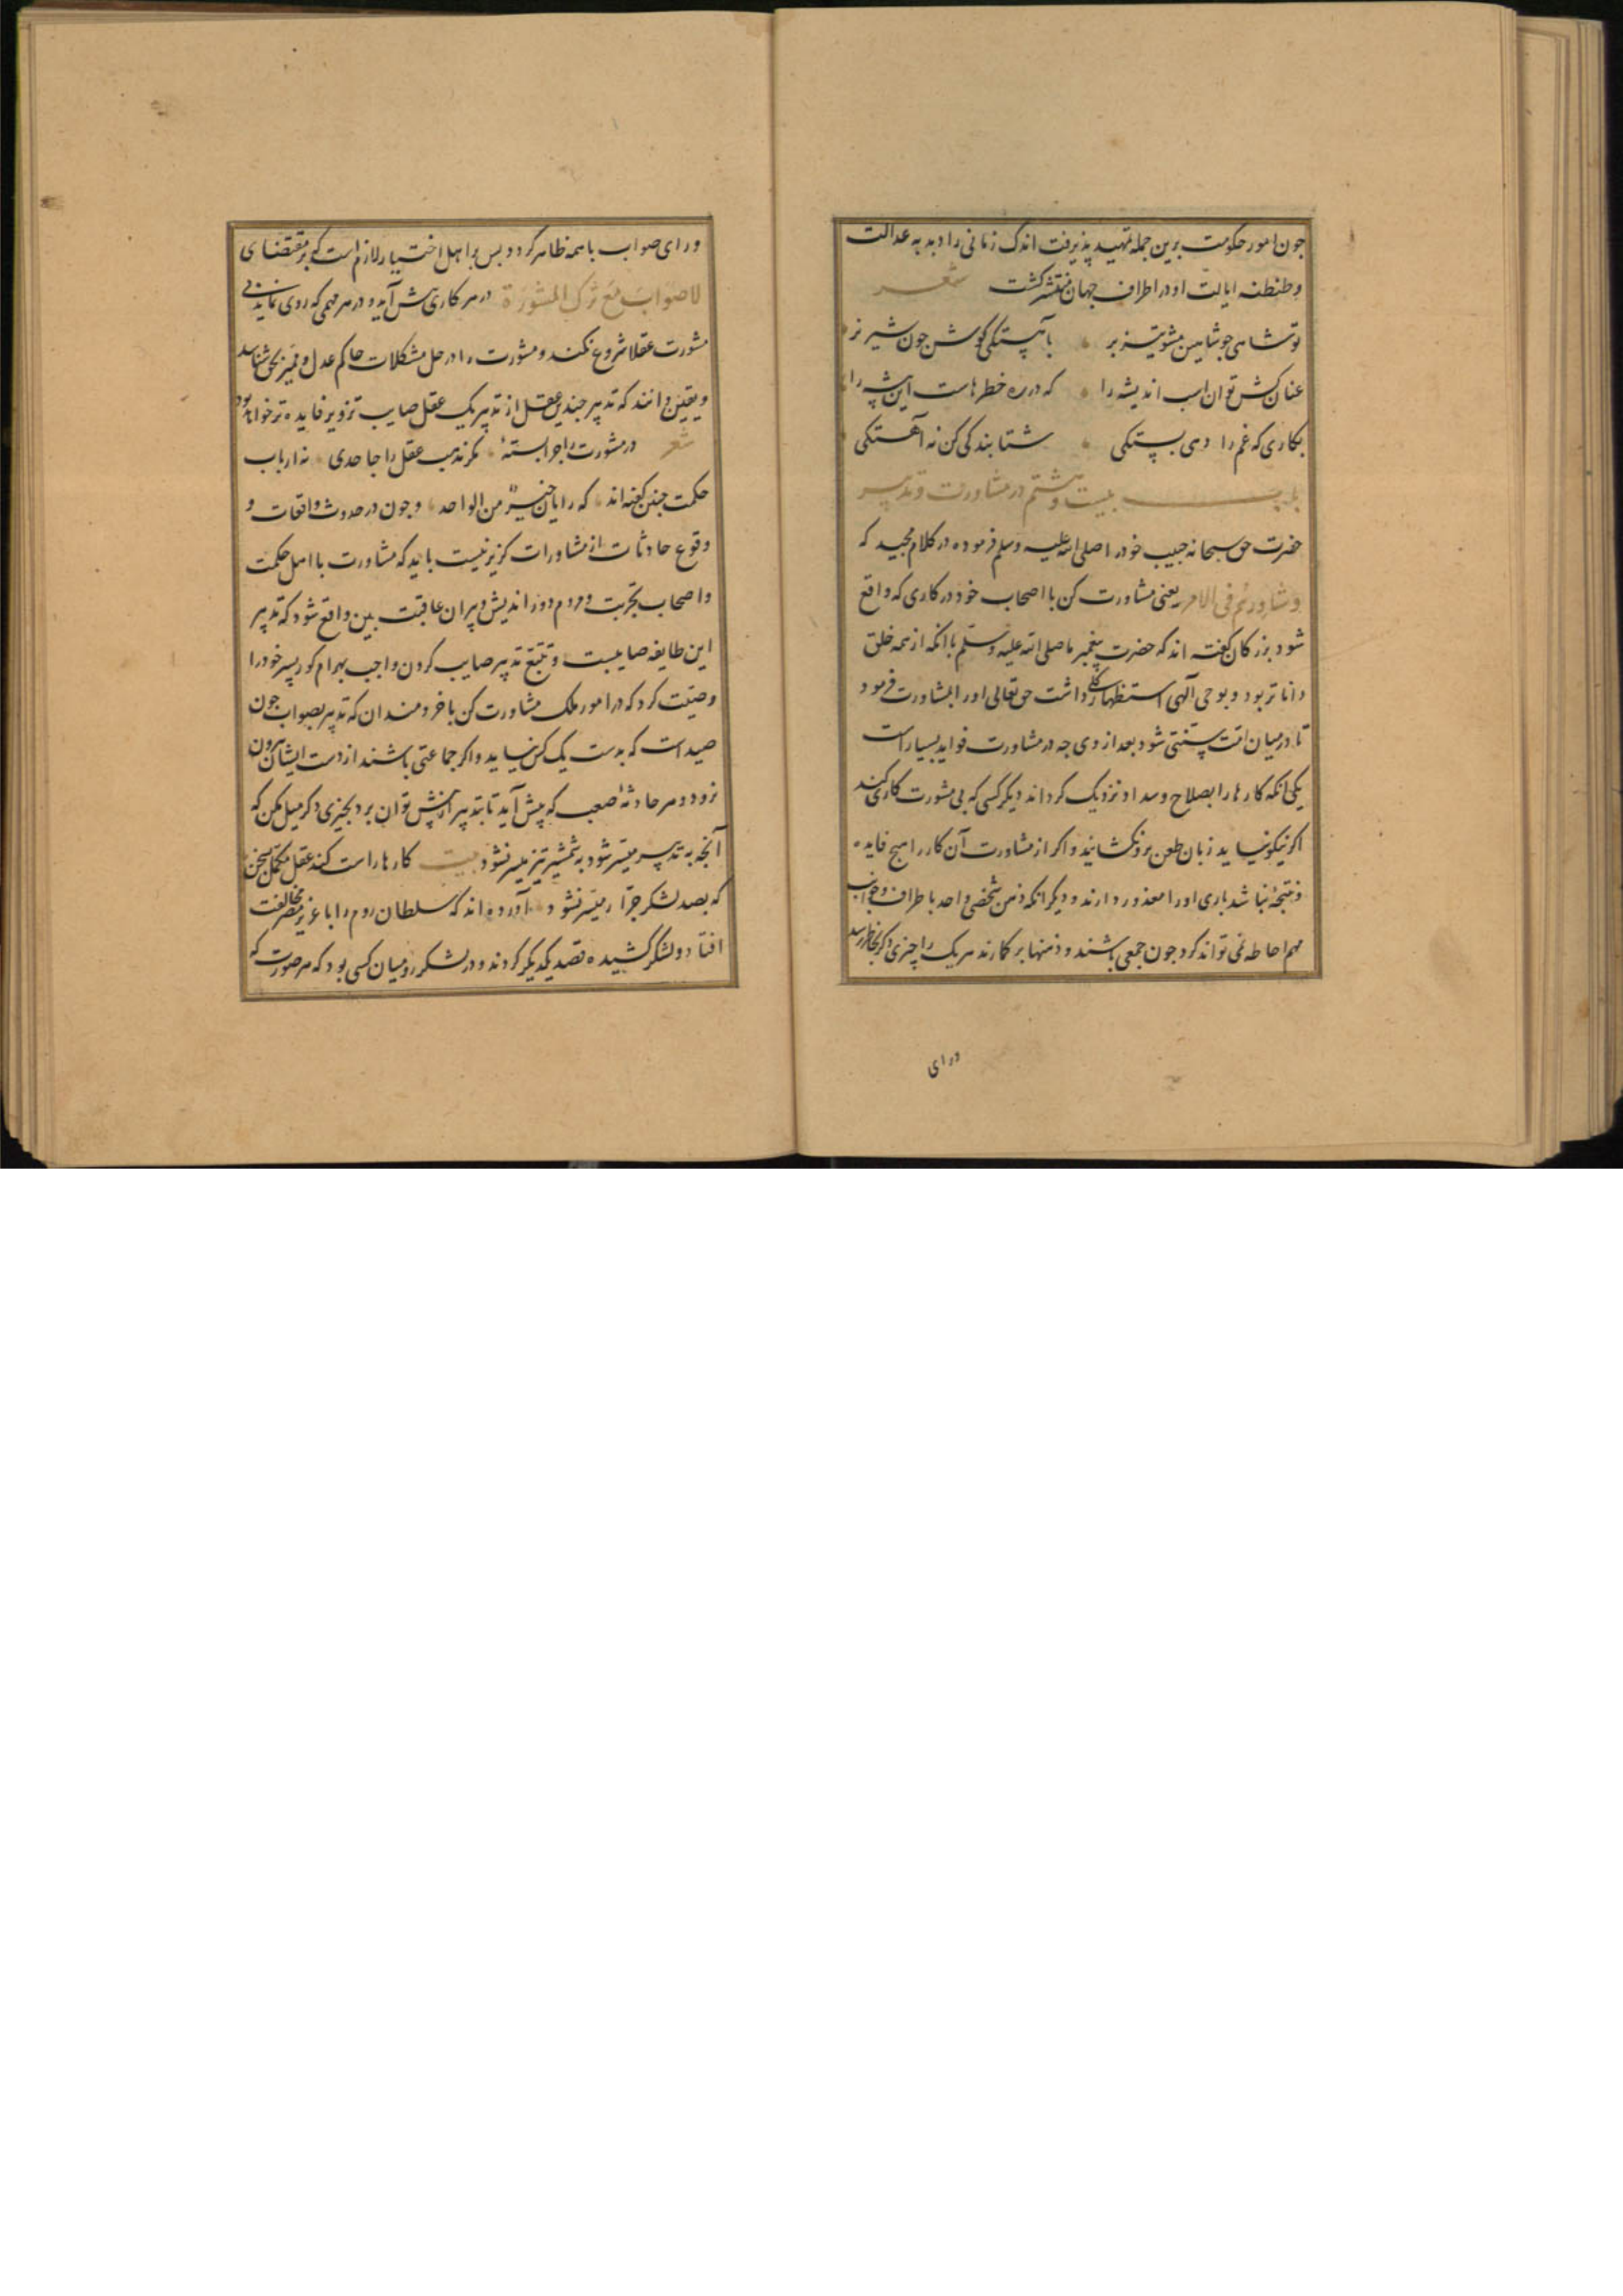 چون امور حکومت برین جمله تمهید پذیرفت اندک زمانی را دبدبه عدالت
وطنطنه ایالت او در اطراف جهان منتشر کشت شعر
تو شاهی جو شاهین مشو تیزبر باهستکی کوش جون شیر نر
عنان کش توان اسب اندیشه را که در ره خطرهاست این بیشه را
بکاری که غم را دهی بستکی شتابندکی کن نه آهستکی
باب بیست وهشتم در مشاورت وتدبیر
حضرت حق سبحانه حبیب خود را صلی الله علیه وسلم فرموده در کلام مجید که
وشاورهم فی الامر یعنی مشاورت کن با اصحاب خود در کاری که واقع
شود بزرکان کفته اند که حضرت پیغمبر ما صلی الله علیه وسلم با انکه از همه خلق
داناتر بود و بوحی آلهی استظهار کلی داشت حق تعالی اورا بمشاورت فرمود
تا در میان امت سنتی شود بعد از وی جه در مشاورت فواید بسیار است
یکی انکه کارها را بصلاح وسداد نزدیک کرداند دیکر کسی که بی مشورت کاری کند
اکر نیکو نیاید زبان طعن برو کشایند و اکر از مشاورت آن کار را هیج فایده
ونتیجهٔ نباشد باری اورا معذور دارند و دیکر انکه ذهن شخصی واحد باطراف وجوانب
مهم احاطه نمی تواند کرد جون جمعی باشند و ذهنها بر کمارند هر یک را چیزی دکر بخاطر رسد
ورای
ورای صواب با همه ظاهر کردد بس بر اهل اختیار لازم است که بر مقتضای
لاصواب مع ترک المشورة در هر کاری بیش آید و در هر مهمی که روی نماید بی
مشورت عقلا شروع نکنند ومشورت را در حل مشکلات حاکم عدل وممیز بحق شناسند
ویقین دانند که تدبیر جندین عقل از تدبیر یک عقل صایب تر وپر فایده تر خواهد بود
شعر در مشورت را جرا بستهٔ مکر مذهب عقل را جاحدی نه ارباب
حکمت جنین کفته اند که رایان خیر من الواحد وجون در حدوث واقعات و
وقوع حادثات از مشاورات کزیر نیست باید که مشاورت با اهل حکمت
واصحاب تجربت ومردم دور اندیش وپیران عاقبت بین واقع شود که تدبیر
این طایفه صایبست وتتبع تدبیر صایب کردن واجب بهرام کور پسر خود را
وصیت کرد که در امور ملک مشاورت کن با خردمندان که تدبیر بصواب جون
صید است که بدست یک کس نیاید واکر جماعتی باشند از دست ایشان بیرون
نرود و هر حادثهٔ صعب که پیش آید تا بتدبیر از پیش توان برد بجیزی دکر میل مکن که
آنجه به تدبیر میسر شود به شمشیر تیز میسر نشود بیت کارها راست کند عقل مکمل بسخن
که بصد لشکر جرار میسر نشود آورده اند که سلطان روم را با عزیز مصر مخالفت
افتاد و لشکر کشیده قصد یکدیکر کردند و در لشکر رومیان کسی بود که هر صورت که